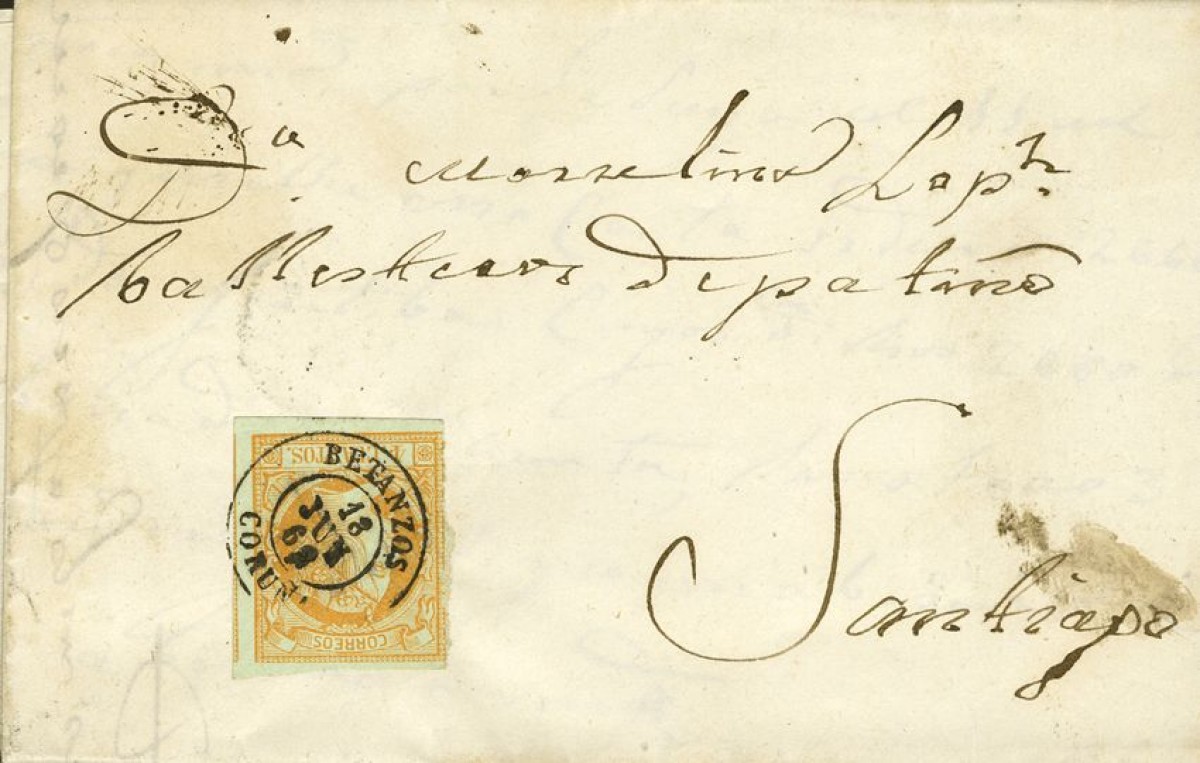 Dª Marcelina Lopz.
ballesteros de patiño
Santiago
4 CUARTOS.
BETANZOS
18
JUN
62
CORUÑA
CORREOS